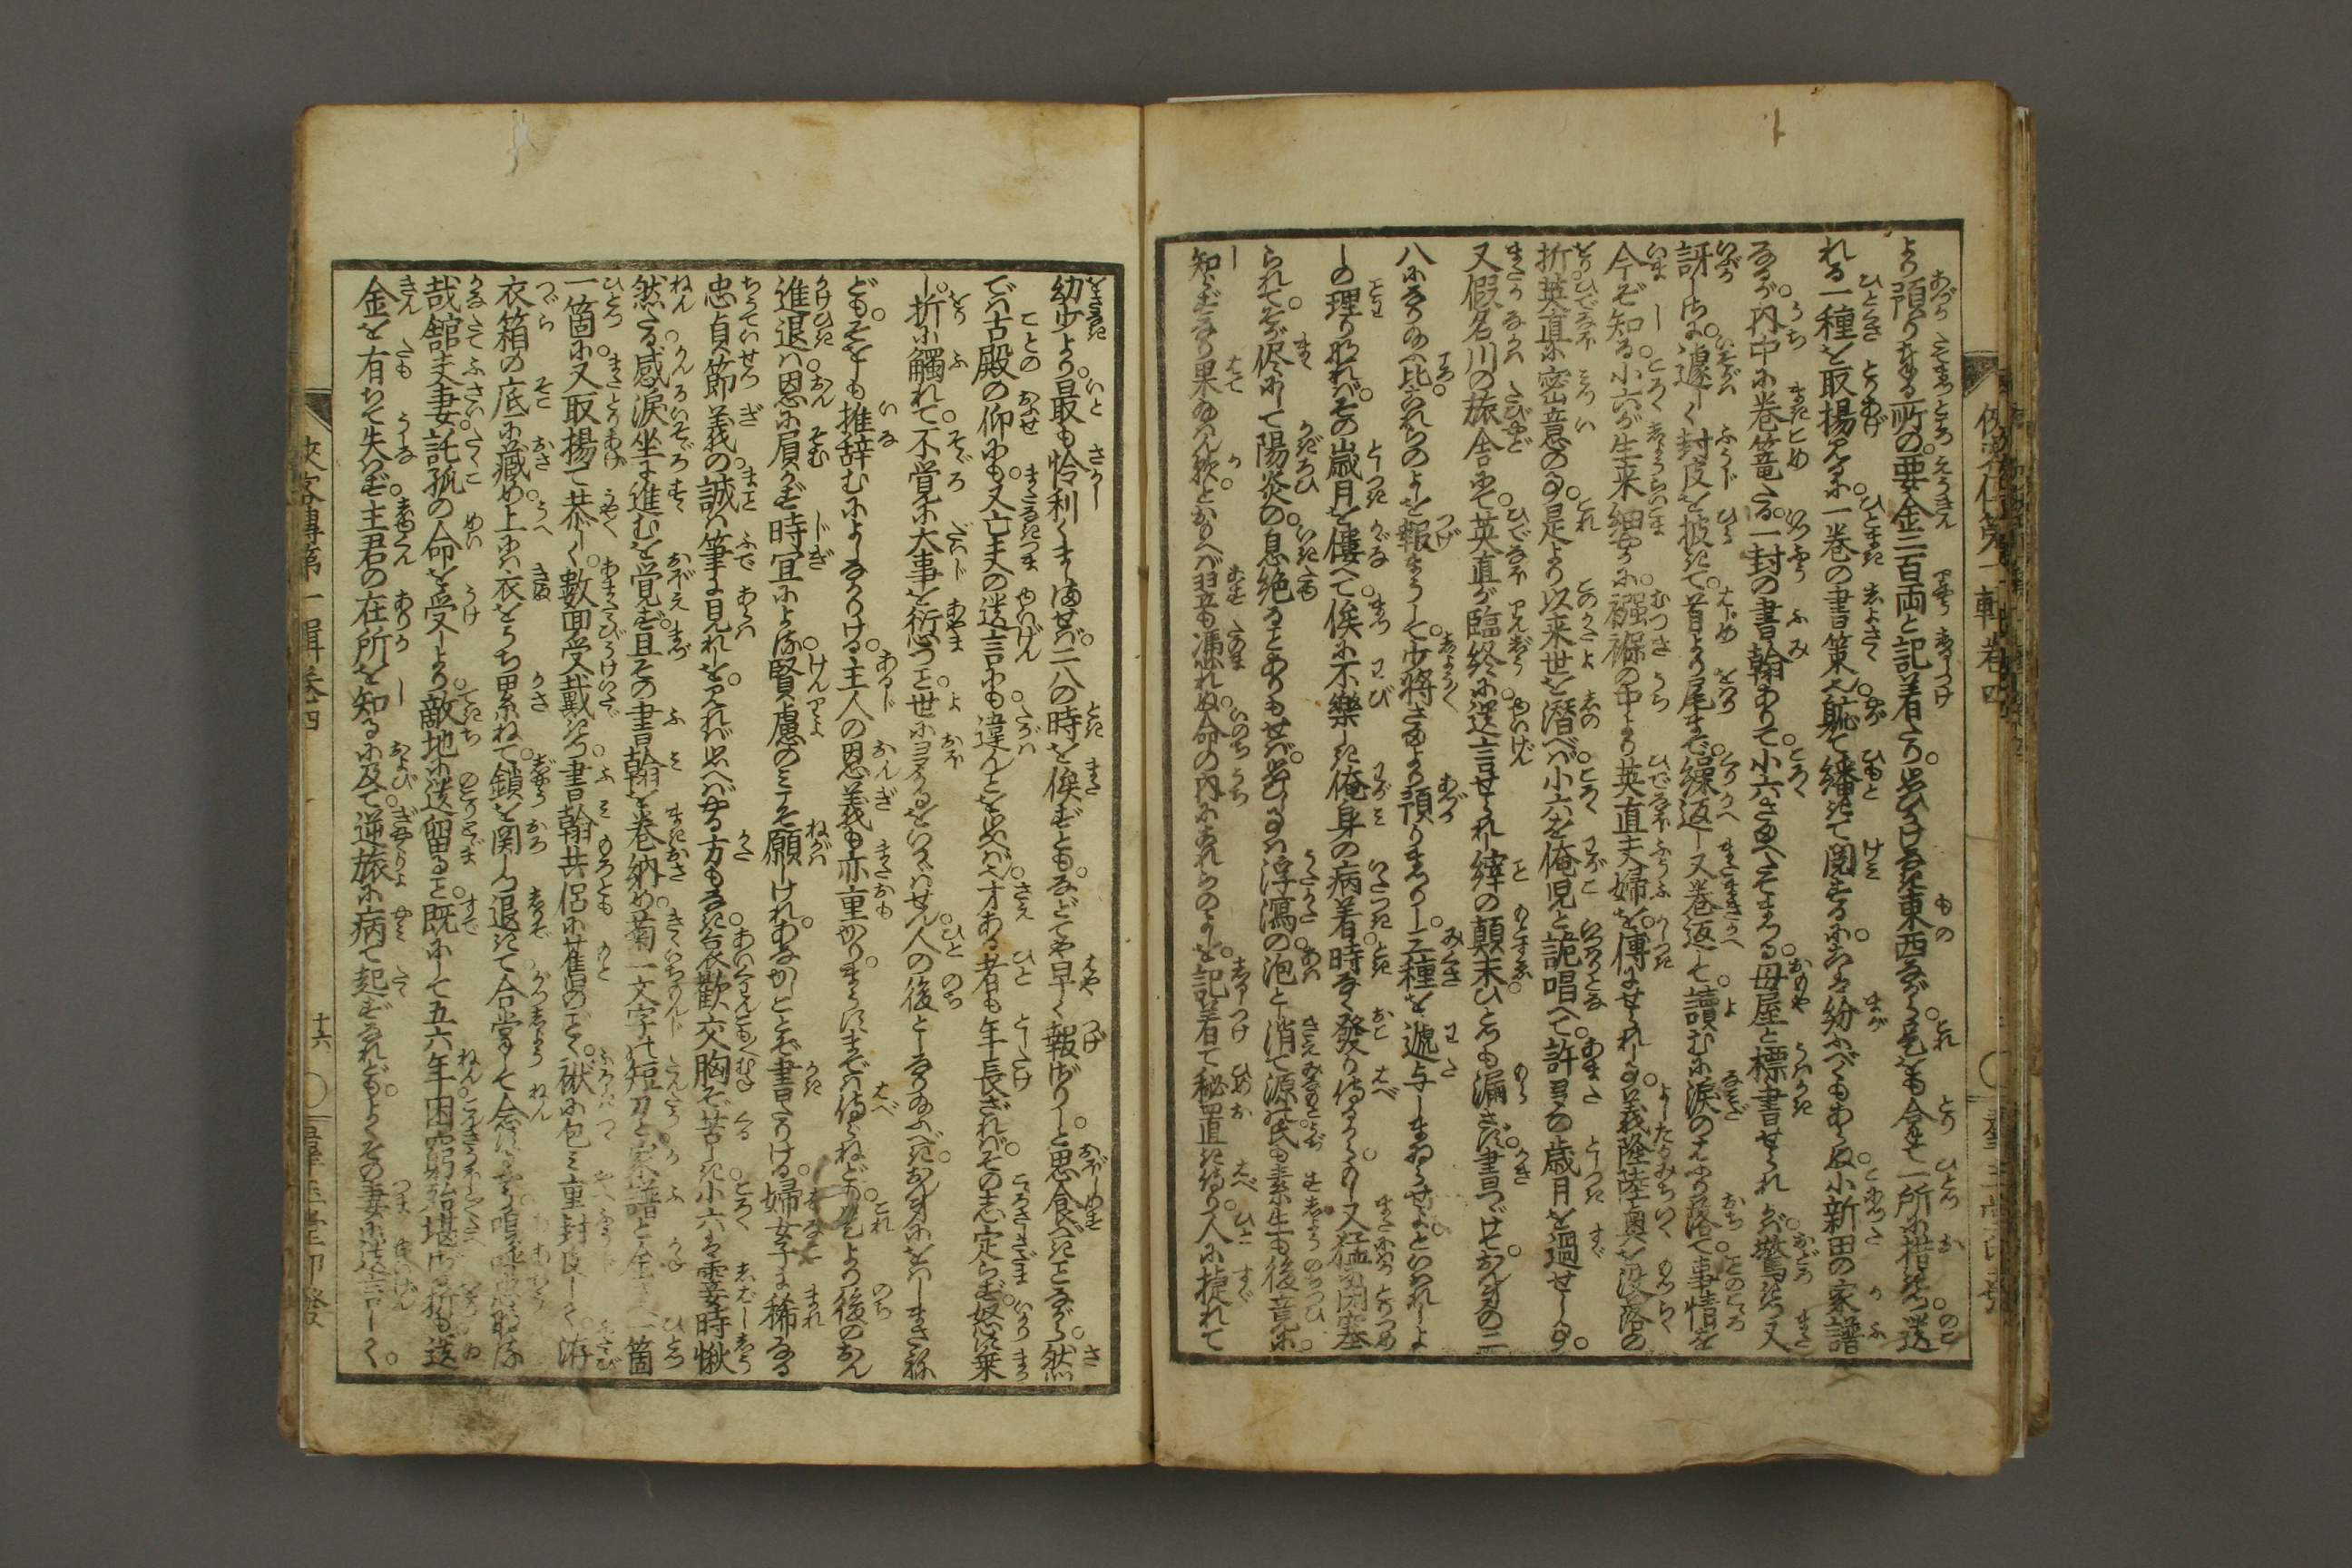 より預りまゐる所の要金三百両と記著たり思ひかけなき東西ながら是をも合せて一所に措きつ送
れる一種を取揚見るに一巻の書策也軈て繙きて閲するに又紛ふべもあらぬ小新田の家譜
なるが内中に巻篭たる一封の書翰ありて小六さまへまゐる母屋と標書せられしが驚きつ又
訝しさに遽しく封皮を披きて首より尾まで繰返し又巻返して讀むに涙のふり落て事情を
今ぞ知る小六が生来細かに襁褓の中より英直夫婦を傅にせられし事義隆陸奥を没落の
折英直に密意の事是より以来世を潜べば小六を俺児と詭唱へて許多の歳月を過せし事
又假名川の旅舎にて英直が臨終に遺言せられし縡の顛末ひとつも漏さず書つゞけておん身の二
八になり給ふ比これらのよしを報まうして少將さまより預りまつりし三種を逓与しまゐらせよといはれしよ
しの理りなればその歳月を僂へて俟に不樂しき俺身の病著時なく發り侍るかし又猛に閉塞
られてそが侭にして陽炎の息絶ることありもせば思ひし事は浮瀉の泡と消て源氏も素生も後竟に
知らずなり果給はん歟とおもへば翌も憑れぬ命の内にこれらのよしを記著て秘置き侍り人に捷れて
幼少より最も怜利くましませば二八の時を俟ずともなどてや早く報ざりしと思食べきことながら然
では古殿の仰にも又亡夫の遺言にも違んことを思へば也才ある者も年長ざればその志定らず怒に乗
し折に觸れて不覚に大事を愆つこと世に多かるをいかゞはせん人の後となり給ふべきおん身にをはしまさね
ども そをも推辞むによしなかりける主人の恩義も亦重かりまうすまでは侍らねどこれより後のおん
進退は恩に屓かず時宜によらず賢慮のミこそ願しけれあなかしことぞ書たりける婦女子に稀なる
忠貞節義の誠は筆に見れしを見れば思へばやる方もなき哀歓交胸ぞ苦しき小六は霎時愀
然たる感涙坐に進むを覚ず且その書翰を巻納め菊一文字の短刀と家譜と金さへ一箇
一箇に又取揚て恭しく數面受戴きつ書翰共侶に舊のごとく袱に包ミ重封皮しく
衣箱の底に藏め上には衣をうち累ねて鎖を関しつ退きて合掌して念ずるやう
哉舘夫妻託孤の命を受しより敵地に送留ること既にして五六年困窮殆堪ざる折も送
金を有ちて失はず主君の在所を知るに及て逆旅に病て起ずなれどもよくその妻に遺言しく
侠客傳第一輯巻四
十六